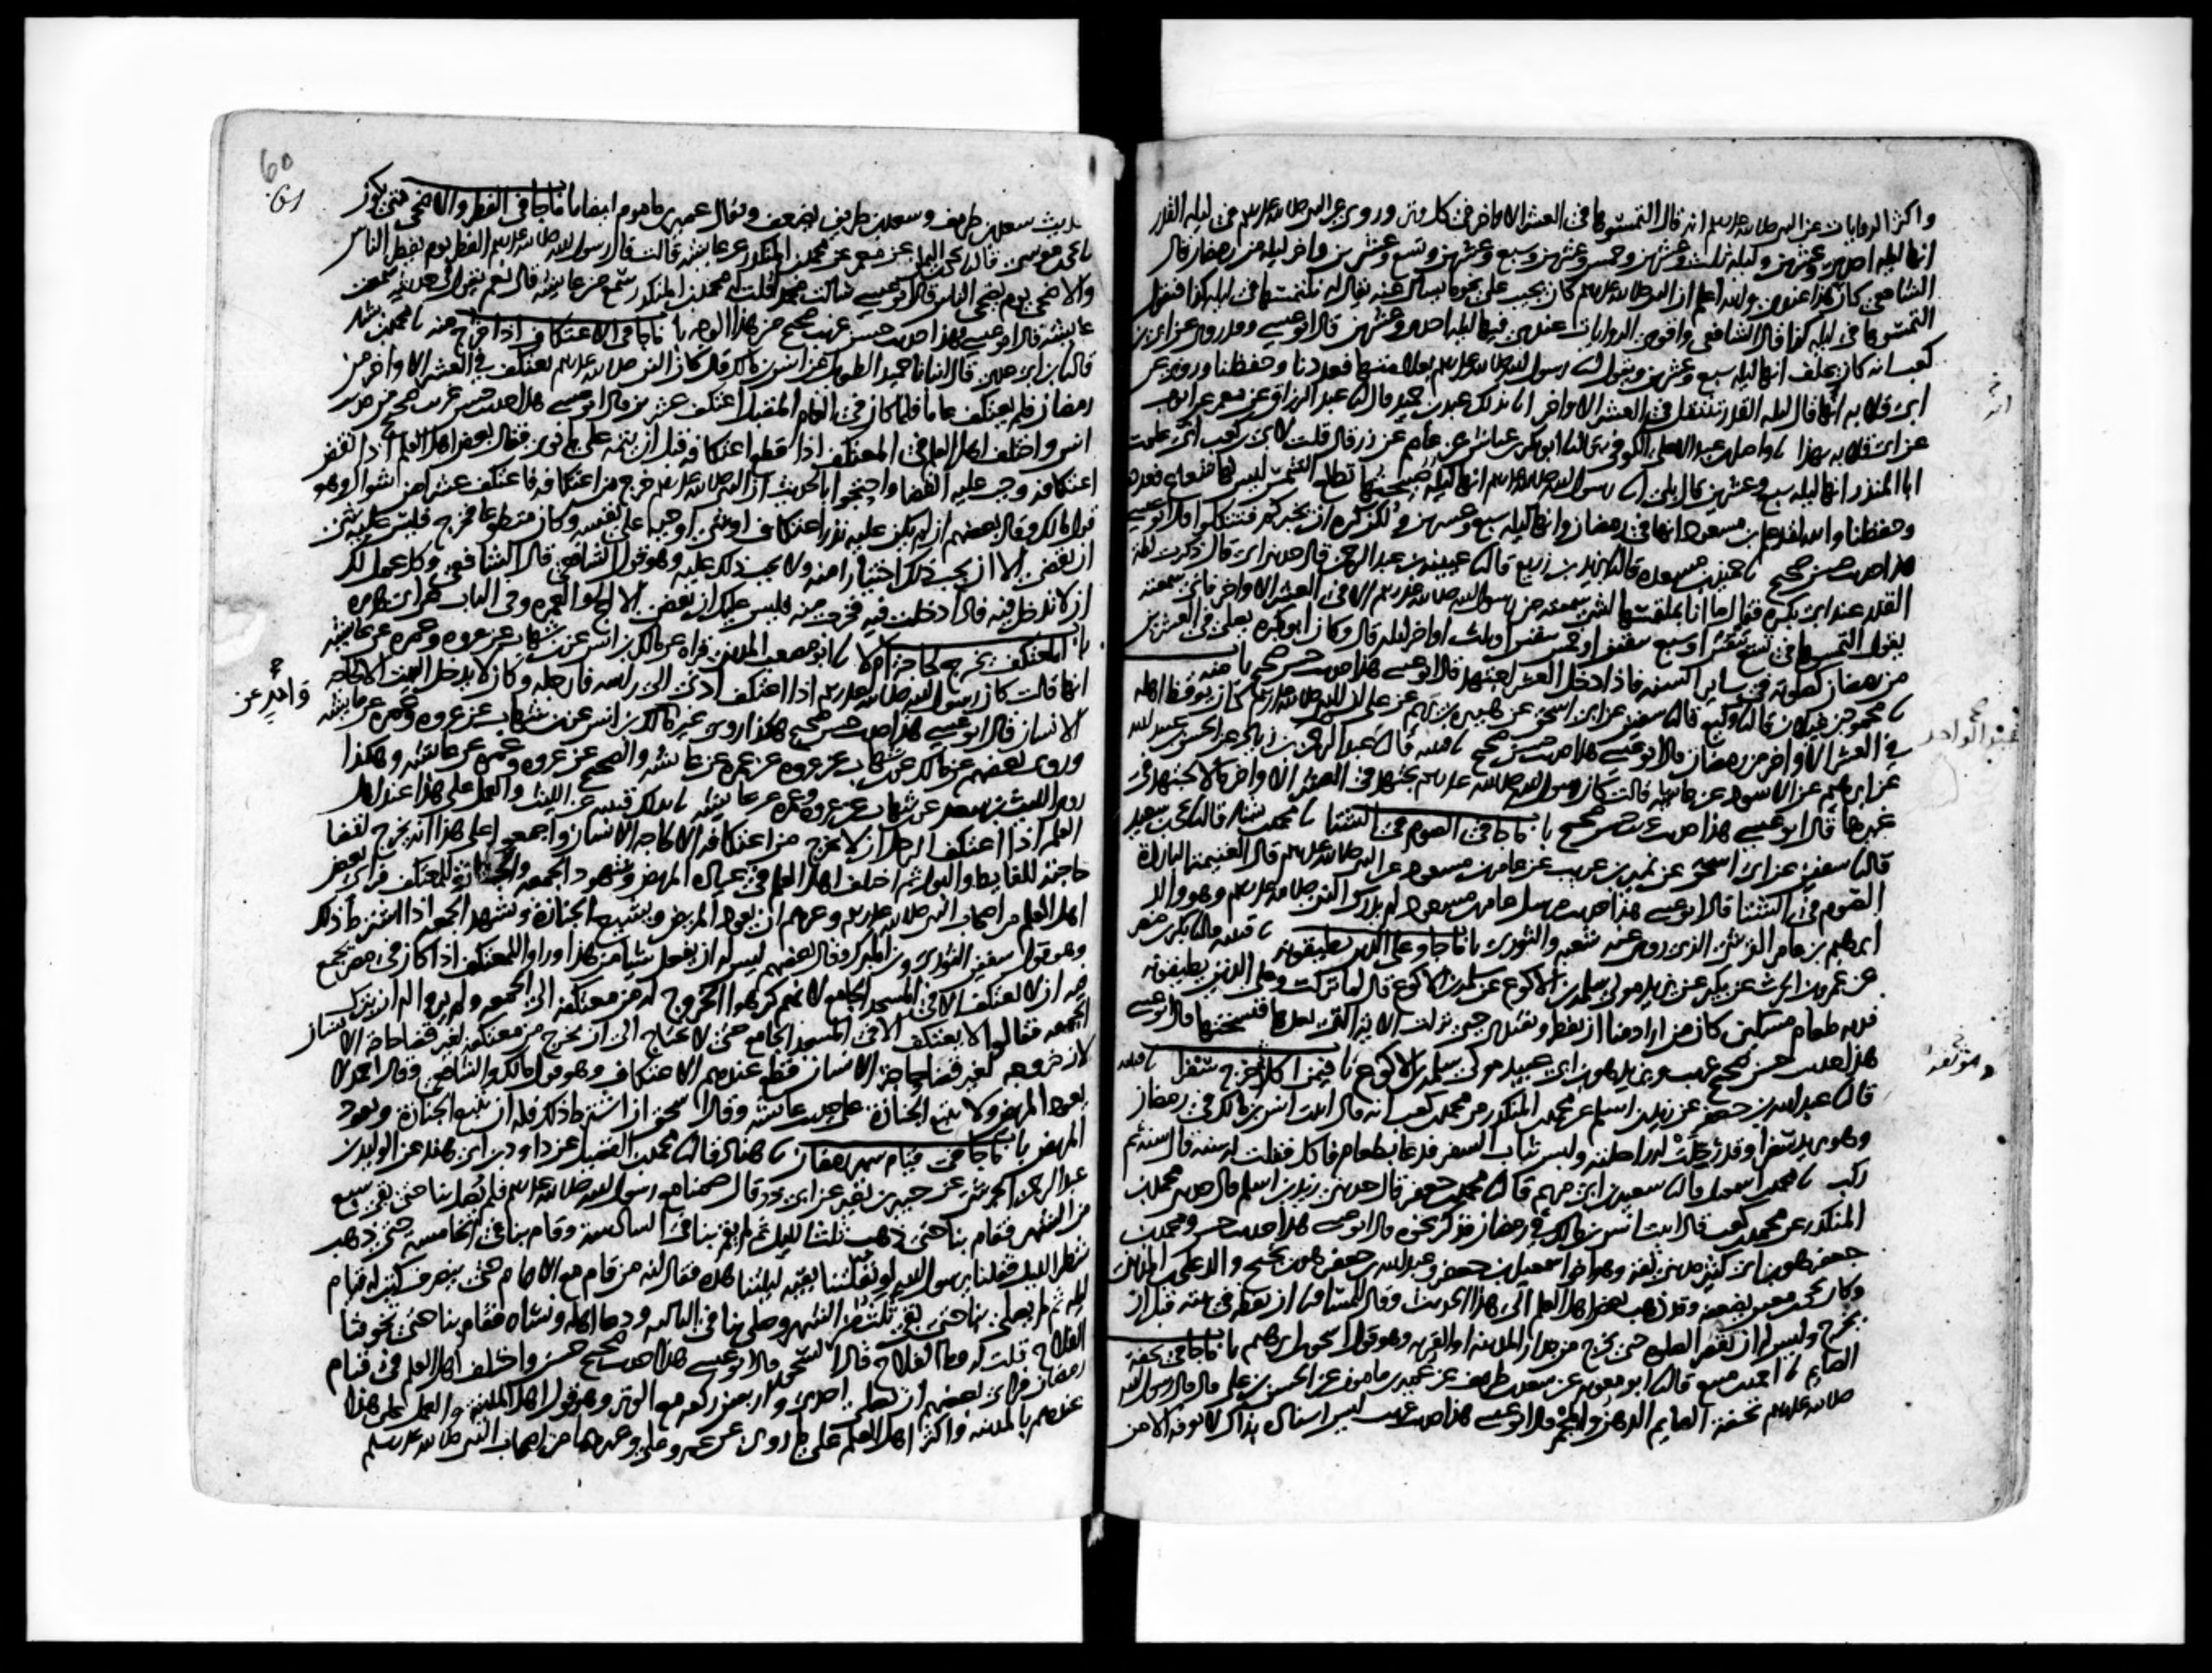 واكثر الروايات عن النبي صلى الله عليه وسلم انه قال التمسوها في العشر الاواخر في كل وتر وروي عن النبي صلى الله عليه وسلم في ليلة القدر
انها ليلة احدى وعشرين وليلة ثلث وعشرين وخمس وعشرين وسبع وعشرين وتسع وعشرين واخر ليلة من رمضان قال
الشافعي كان هذا عندي والله اعلم ان النبي صلى الله عليه وسلم كان يجيب على نحو ما يسال عنه يقال له نلتمسها في ليلة كذا فيقول
التمسوها في ليلة كذا قال الشافعي واقوى الروايات عندي فيها ليلة احدى وعشرين قال ابو عيسى وقد روي عن ابي بن
كعب انه كان يحلف انها ليلة سبع وعشرين ويقول انا رسول الله صلى الله عليه وسلم بعلامتها فعددنا وحفظنا وروي عن
ابي قلابه انه قال ليلة القدر تنتقل في العشر الاواخر نا بذلك عبد بن حميد قال نا عبد الرزاق عن معمر عن ايوب
عن ابي قلابه بهذا نا واصل بن عبد الاعلى الكوفي قال نا ابو بكر بن عياش عن عاصم عن زر قال قلت لابي بن كعب انى علمت
ابا المنذر انها ليلة سبع وعشرين قال بلى انا رسول الله صلى الله عليه وسلم انها ليلة صبيحتها تطلع الشمس ليس لها شعاع فعددنا
وحفظنا والله لقد علم بن مسعود انها في رمضان وانها ليلة سبع وعشرين ولكن كره ان يخبركم فتتكلوا قال ابو عيسى
هذا حديث حسن صحيح نا حميد بن مسعدة قال نا يزيد بن زريع قال نا عيينة بن عبد الرحمن قال حدثني ابي قال ذكرت ليلة
القدر عند ابي بكرة فقال ما انا بملتمسها لشي سمعته من رسول الله صلى الله عليه وسلم الا في العشر الاواخر فاني سمعته
يقول التمسوها في تسع يبقين او سبع يبقين او خمس يبقين او ثلث اواخر ليلة قال وكان ابو بكرة يصلي في العشرين
من رمضان كصلوته في ساير السنة فاذا دخل العشر اجتهد قال ابو عيسى هذا حديث حسن صحيح باب منه
نا محمود بن غيلان قال نا وكيع قال نا سفين عن ابي اسحق عن هبيرة بن يريم عن علي ان النبي صلى الله عليه وسلم كان يوقظ اهله
في العشر الاواخر من رمضان قال ابو عيسى هذا حديث حسن صحيح نا قتيبة قال نا عبد الرحمن بن زياد عن الحسن بن عبيد الله
عبد الواحد
عن ابرهيم عن الاسود عن عايشة قالت كان رسول الله صلى الله عليه وسلم يجتهد في العشر الاواخر ما لا يجتهد في
غيرها قال ابو عيسى هذا حديث غريب حسن صحيح باب ما جا في الصوم في الشتا نا محمد بن بشار قال نا يحيى بن سعيد
قال نا سفين عن ابي اسحق عن نمير بن عريب عن عامر بن مسعود عن النبي صلى الله عليه وسلم قال الغنيمة الباردة
الصوم في الشتا قال ابو عيسى هذا حديث مرسل عامر بن مسعود لم يدرك النبي صلى الله عليه وسلم وهو والد
ابرهيم بن عامر القرشي الذي روى عنه شعبة والثوري باب ما جا وعلى الذين يطيقونه نا قتيبة قال نا بكر بن مضر
عن عمرو بن الحرث عن بكير عن يزيد مولى سلمة بن الاكوع عن سلمة بن الاكوع قال لما نزلت وعلى الذين يطيقونه
فدية طعام مسكين كان من اراد منا ان يفطر ويفتدي حتى نزلت الاية التي بعدها فنسختها قال ابو عيسى
هذا حديث حسن صحيح غريب ويزيد هو بن ابي عبيد مولى سلمة بن الاكوع باب فيمن اكل ثم خرج سفرا نا قتيبة
قال نا عبد الله بن جعفر عن زيد بن اسلم عن محمد بن المنكدر عن محمد بن كعب انه قال اتيت انس بن مالك في رمضان
وهو يريد سفرا وقد رحلت له راحلته ولبس ثياب السفر فدعا بطعام فاكل فقلت له سنة قال سنة ثم
ركب نا محمد بن اسمعيل قال نا سعيد بن ابي مريم قال نا محمد بن جعفر قال حدثني زيد بن اسلم قال حدثني محمد بن
المنكدر عن محمد بن كعب قال اتيت انس بن مالك في رمضان فذكر نحوه قال ابو عيسى هذا حديث حسن ومحمد بن
جعفر هو بن ابي كثير مديني ثقة وهو اخو اسمعيل بن جعفر وعبد الله بن جعفر هو بن نجيح والد علي المديني
وكان يحيى بن معين يضعفه وقد ذهب بعض اهل العلم الى هذا الحديث وقال للمسافر ان يفطر في بيته قبل ان
يخرج وليس له ان يقصر الصلوة حتى يخرج من جدار المدينة او القرية وهو قول اسحق بن ابرهيم باب ما جا في تحفة
الصايم نا احمد بن منيع قال نا ابو معوية عن سعد بن طريف عن عمير بن مامون عن الحسن بن علي قال قال رسول الله
صلى الله عليه وسلم تحفة الصايم الدهن والمجمر قال ابو عيسى هذا حديث غريب ليس اسناده بذاك لا نعرفه الا من
60
61
حديث سعد بن طريف وسعد بن طريف يضعف ويقال عمير بن ماموم ايضا باب ما جا في الفطر والاضحى متى يكون
نا يحيى بن موسى قال نا يحيى بن اليمان عن معمر عن محمد بن المنكدر عن عايشة قالت قال رسول الله صلى الله عليه وسلم الفطر يوم يفطر الناس
والاضحى يوم يضحي الناس قال ابو عيسى سالت محمدا قلت له محمد بن المنكدر سمع من عايشة قال نعم يقول في حديثه سمعت
عايشة قال ابو عيسى هذا حديث حسن غريب صحيح من هذا الوجه باب ما جا في الاعتكاف اذا خرج منه نا محمد بن بشار
قال نا بن ابي عدي قال انبانا حميد الطويل عن انس بن مالك قال كان النبي صلى الله عليه وسلم يعتكف في العشر الاواخر من
رمضان فلم يعتكف عاما فلما كان في العام المقبل اعتكف عشرين قال ابو عيسى هذا حديث حسن غريب صحيح من حديث
انس واختلف اهل العلم في المعتكف اذا قطع اعتكافه قبل ان يتمه على ما نوى فقال بعض اهل العلم اذا نقض
اعتكافه وجب عليه القضا واحتجوا بالحديث ان النبي صلى الله عليه وسلم خرج من اعتكافه فاعتكف عشرا من شوال وهو
قول مالك وقال بعضهم ان لم يكن عليه نذر اعتكاف او شي اوجبه على نفسه وكان متطوعا فخرج فليس عليه شي
ان يقضي الا ان يحب ذلك اختيارا منه ولا يجب ذلك عليه وهو قول الشافعي قال الشافعي وكل عمل لك
ان لا تدخل فيه فاذا دخلت فيه فخرجت منه فليس عليك ان تقضي الا الحج والعمرة وفي الباب عن ابي هريرة
باب المعتكف يخرج لحاجته ام لا نا ابو مصعب المديني قراة عن مالك بن انس عن بن شهاب عن عروة وعمرة عن عايشة
انها قالت كان رسول الله صلى الله عليه وسلم اذا اعتكف ادنى الي راسه فارجله وكان لا يدخل البيت الا لحاجة
الانسان قال ابو عيسى هذا حديث حسن صحيح هكذا روى غير واحد عن مالك بن انس عن بن شهاب عن عروة وعمرة عن عايشة
وروى بعضهم عن مالك عن بن شهاب عن عروة عن عمرة عن عايشة والصحيح عن عروة وعمرة عن عايشة وهكذا
روى الليث بن سعد عن بن شهاب عن عروة وعمرة عن عايشة نا بذلك قتيبة عن الليث والعمل على هذا عند اهل
العلم اذا اعتكف الرجل ان لا يخرج من اعتكافه الا لحاجة الانسان واجمعوا على هذا انه يخرج لقضا
حاجته للغايط والبول ثم اختلف اهل العلم في عيادة المريض وشهود الجمعة والجنازة للمعتكف فراى بعض
اهل العلم من اصحاب النبي صلى الله عليه وسلم وغيرهم ان يعود المريض ويشيع الجنازة ويشهد الجمعة اذا اشترط ذلك
وهو قول سفين الثوري وبن المبرك وقال بعضهم ليس له ان يفعل شيا من هذا وراوا للمعتكف اذا كان في مصر يجمع
فيه ان لا يعتكف الا في المسجد الجامع لانهم كرهوا الخروج له من معتكفه الى الجمعة ولم يروا له ان يترك
الجمعة فقالوا لا يعتكف الا في المسجد الجامع حتى لا يحتاج الى ان يخرج من معتكفه لغير قضا حاجة الانسان
لان خروجه لغير قضا حاجة الانسان قطع عندهم الاعتكاف وهو قول مالك والشافعي وقال احمد لا
يعود المريض ولا يتبع الجنازة على حديث عايشة وقال اسحق ان اشترط ذلك فله ان يتبع الجنازة ويعود
المريض باب ما جا في قيام شهر رمضان نا هناد قال نا محمد بن الفضيل عن داود بن ابي هند عن الوليد بن
عبد الرحمن الجرشي عن جبير بن نفير عن ابي ذر قال صمنا مع رسول الله صلى الله عليه وسلم فلم يصل بنا حتى بقي سبع
من الشهر فقام بنا حتى ذهب ثلث الليل ثم لم يقم بنا في السادسة وقام بنا في الخامسة حتى ذهب
شطر الليل فقلنا يرسول الله لو نفلتنا بقية ليلتنا هذه فقال انه من قام مع الامام حتى ينصرف كتب له قيام
ليلة ثم لم يصل بنا حتى بقي ثلث من الشهر وصلى بنا في الثالثة ودعا اهله ونساه فقام بنا حتى تخوفنا
الفلاح قلت له وما الفلاح قال السحور قال ابو عيسى هذا حديث صحيح حسن واختلف اهل العلم في قيام
رمضان فراى بعضهم ان يصلي احدى واربعين ركعة مع الوتر وهو قول اهل المدينة والعمل على هذا
عندهم بالمدينة واكثر اهل العلم على ما روي عن عمر وعلي وغيرهما من اصحاب النبي صلى الله عليه وسلم